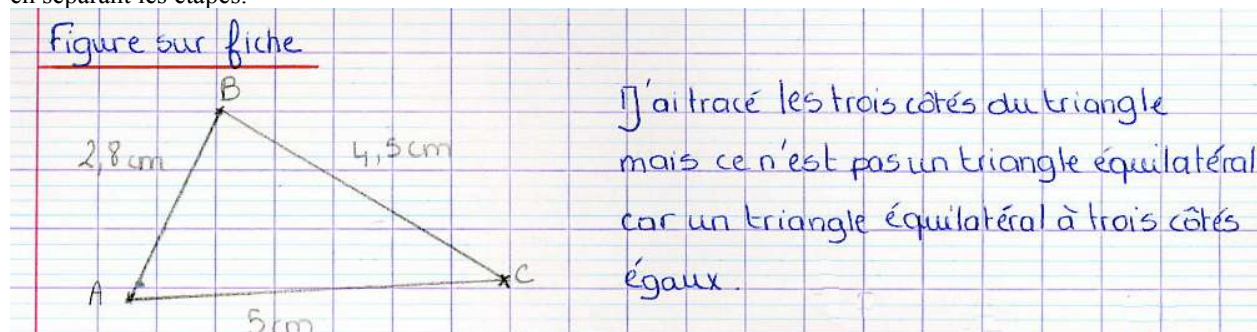 en séparant les étapes.
Figure sur fiche
B
2,8 cm
4,5 cm
A
C
5 cm
J'ai tracé les trois côtés du triangle
mais ce n'est pas un triangle équilatéral
car un triangle équilatéral à trois côtés
égaux.